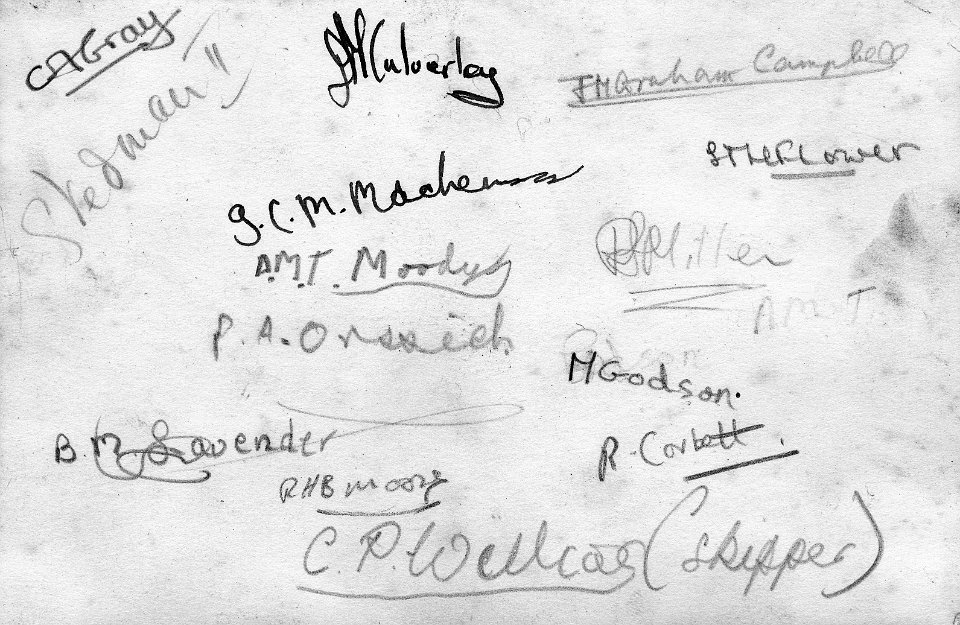 C A Gray
Culverley
J M Graham Campbell
Skedman"
S T H Flower
G. C. M. Mackenzie
A.M.T. Moody
Miller
A M T
P. A. Orssich
M Godson.
B. M. Lavender
R. Corbett.
R H B Moore
C. P. (Skipper)